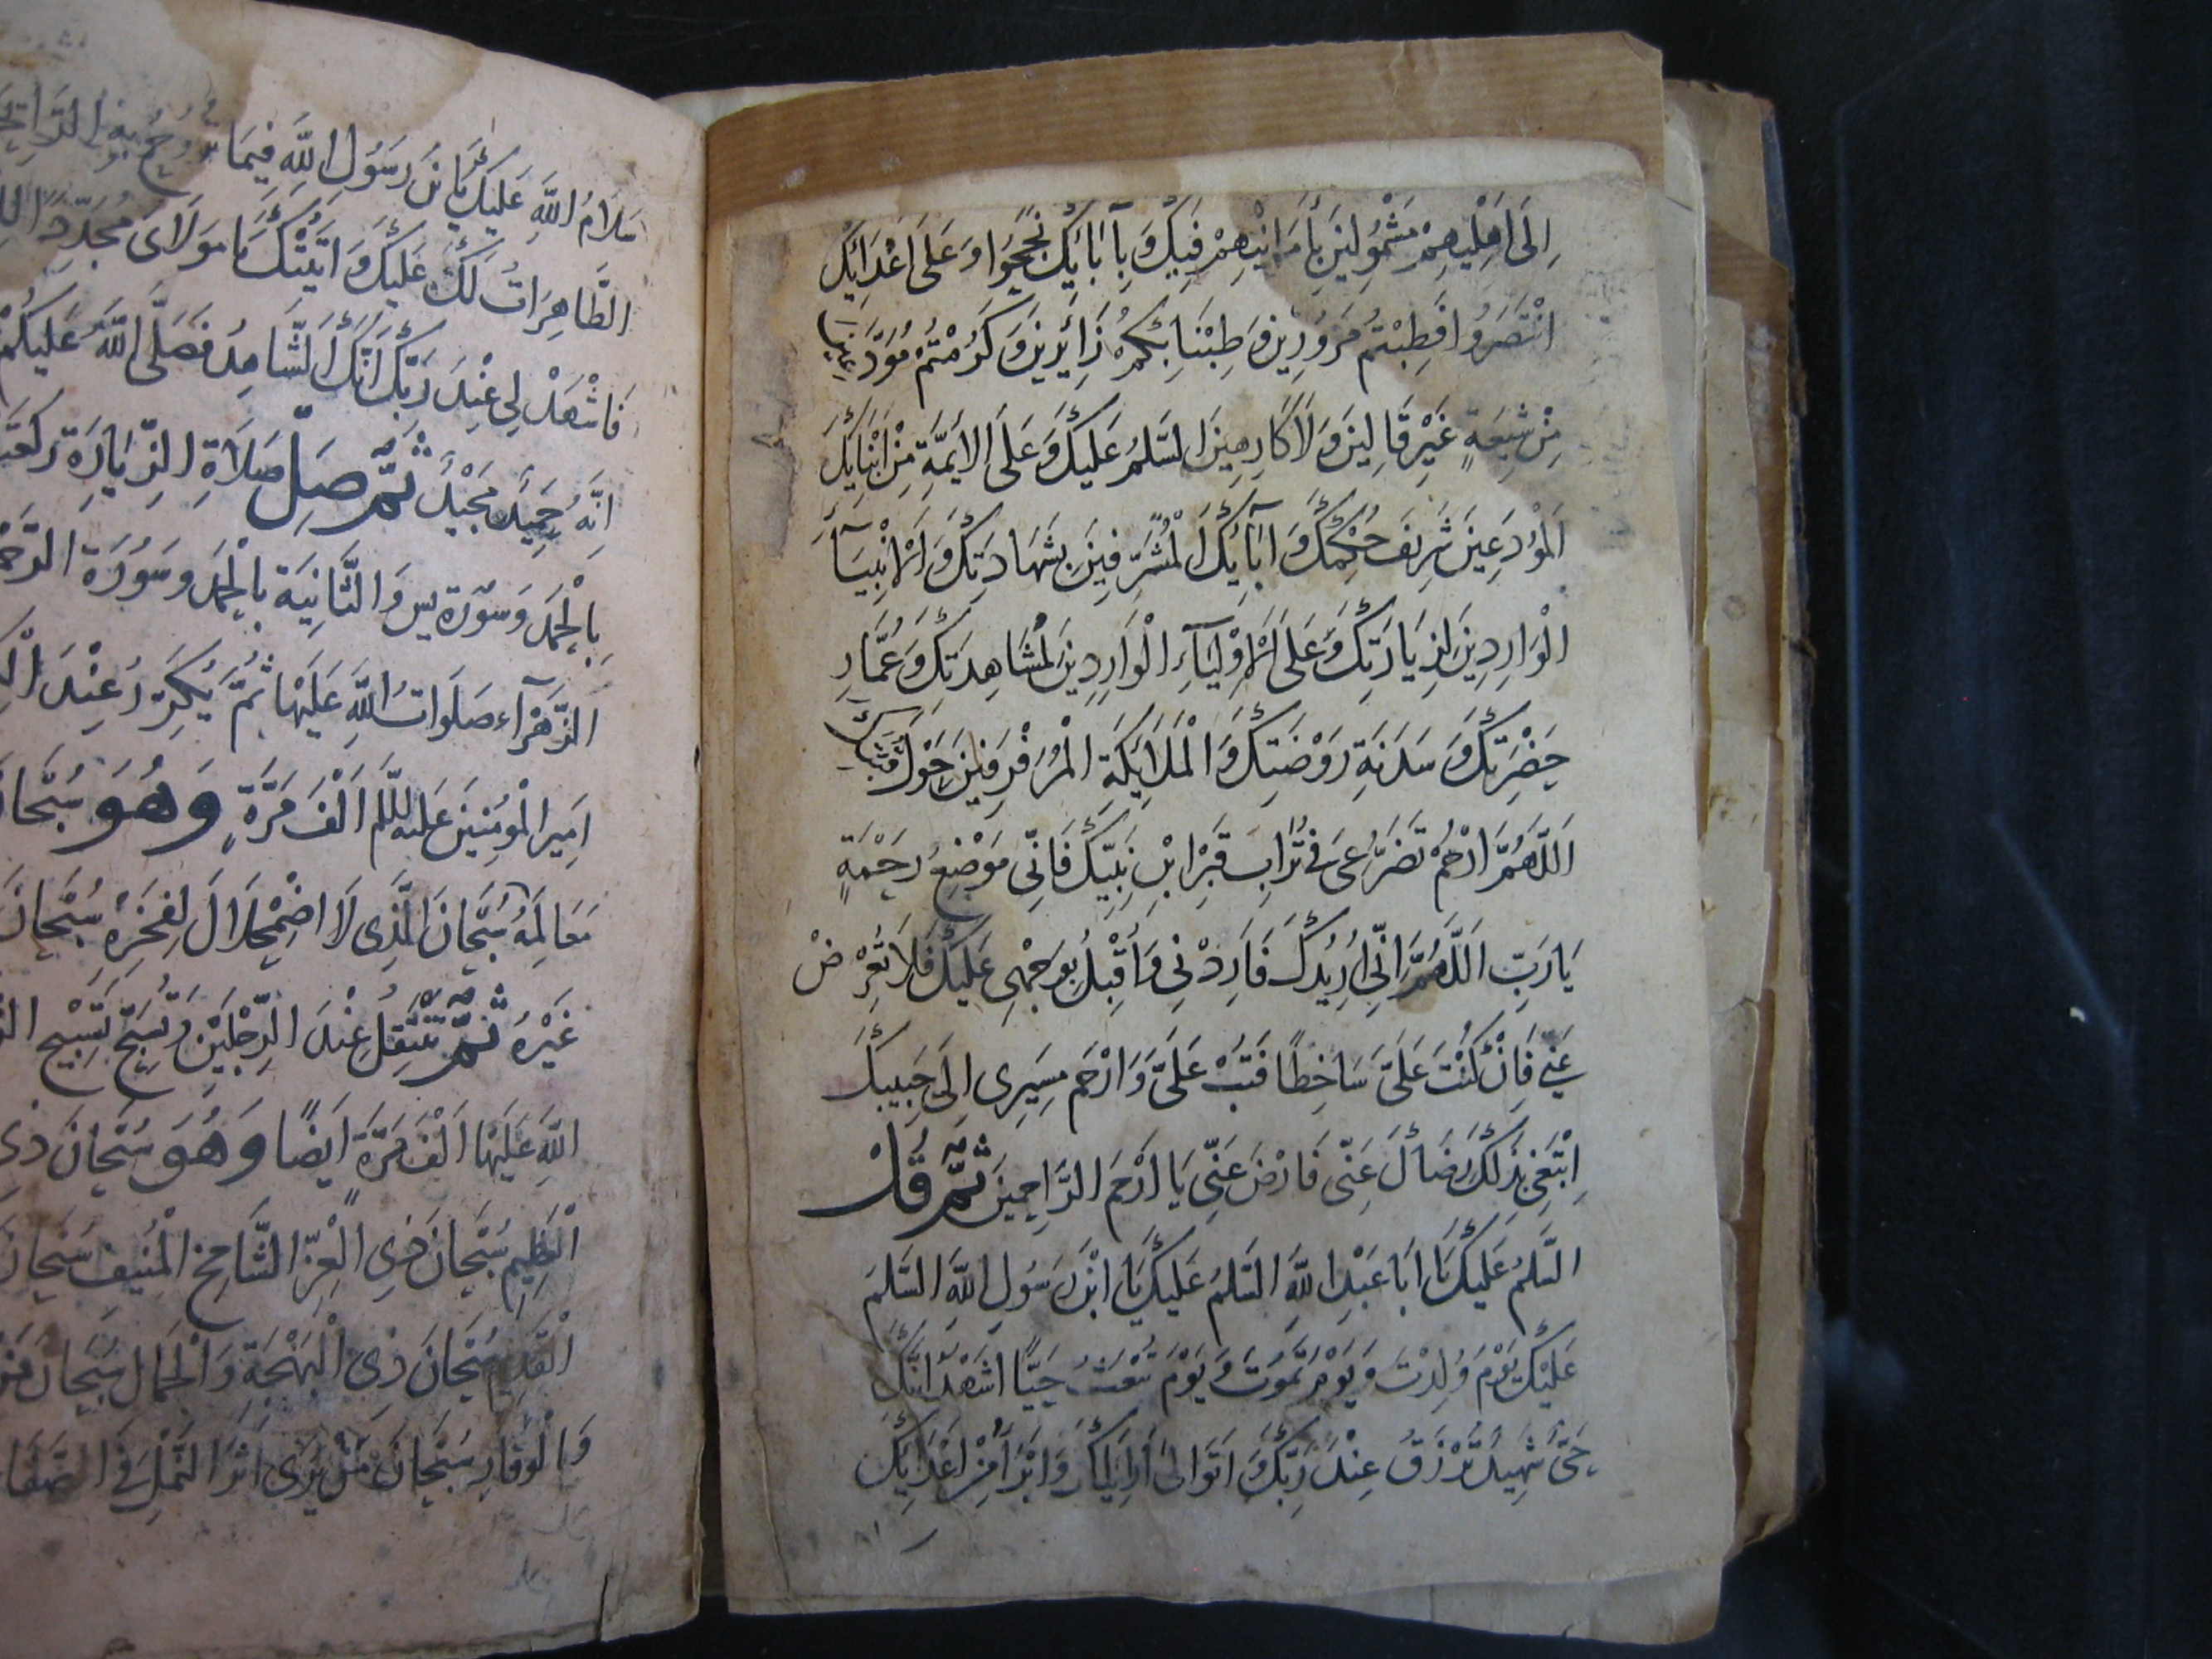 اِلَى اَهْلِيهِمْ مَشْمُولِينَ بِأَمَانِيهِمْ فَبِكَ وَبِآبَائِكَ نَجَحُوا وَعَلَى اَعْدَائِكَ
انْتَصَرُوا فَطِبْتُمْ مَزُورِينَ وَطِبْنَا بِكُمْ زَائِرِينَ وَكَرُمْتُمْ مُوَدَّعِينَ
مِنْ شِيعَةٍ غَيْرِ قَالِينَ وَلَا كَارِهِينَ السَّلَمُ عَلَيْكَ وَعَلَى الْاَئِمَّةِ مِنْ اَبْنَائِكَ
الْمُودَعِينَ شَرِيفَ حُكْمِكَ وَآبَائِكَ الْمُشَرَّفِينَ بِشَهَادَتِكَ وَالْاَنْبِيَآءِ
الْوَارِدِينَ لِزِيَارَتِكَ وَعَلَى الْاَوْلِيَآءِ الْوَارِدِينَ لِمُشَاهَدَتِكَ وَعُمَّارِ
حَضْرَتِكَ وَسَدَنَةِ رَوْضَتِكَ وَالْمَلَائِكَةِ الْمُرَفْرِفِينَ حَوْلَ قُبَّتِكَ
اَللَّهُمَّ ارْحَمْ تَضَرُّعِى فِى تُرَابِ قَبْرِ ابْنِ نَبِيِّكَ فَاِنِّى مَوْضِعُ رَحْمَةٍ
يَا رَبِّ اَللَّهُمَّ اِنِّى اُرِيدُكَ فَاَرِدْنِى وَاُقْبِلُ بِوَجْهِى عَلَيْكَ فَلَا تُعْرِضْ
عَنِّى فَاِنْ كُنْتَ عَلَىَّ سَاخِطًا فَتُبْ عَلَىَّ وَارْحَمْ مَسِيرِى اِلَى حَبِيبِكَ
اَبْتَغِى بِذَلِكَ رِضَاكَ عَنِّى فَارْضَ عَنِّى يَا اَرْحَمَ الرَّاحِمِينَ ثُمَّ قُلْ
السَّلَمُ عَلَيْكَ يَا اَبَا عَبْدِ اللَّهِ السَّلَمُ عَلَيْكَ يَا ابْنَ رَسُولِ اللَّهِ السَّلَمُ
عَلَيْكَ يَوْمَ وُلِدْتَ وَيَوْمَ تَمُوتُ وَيَوْمَ تُبْعَثُ حَيًّا اَشْهَدُ اَنَّكَ
حَىٌّ شَهِيدٌ تُرْزَقُ عِنْدَ رَبِّكَ وَاَتَوَالَى اَوْلِيَاءَكَ وَاَبْرَأُ مِنْ اَعْدَائِكَ
سَلَامُ اللَّهِ عَلَيْكَ يَا بْنَ رَسُولِ اللَّهِ فِيمَا تَرُوحُ بِهِ الرَّائِحَ
الطَّاهِرَاتُ لَكَ عَلَيْكَ وَاَتَيْتُكَ يَا مَوْلَاىَ مُجَدِّدًا
فَاشْهَدْ لِى عِنْدَ رَبِّكَ اَنَّكَ الشَّاهِدُ فَصَلَّى اللَّهُ عَلَيْكُمْ
اِنَّهُ حَمِيدٌ مَجِيدٌ ثُمَّ صَلِّ صَلَاةَ الزِّيَارَةِ رَكْعَتَ
بِالْحَمْدِ وَسُورَةِ يس وَالثَّانِيَةَ بِالْحَمْدِ وَسُورَةِ الرَّحْمَ
الزَّهْرَآءِ صَلَوَاتُ اللَّهِ عَلَيْهَا ثُمَّ يُكَرِّرُ عِنْدَ
اَمِيرِ الْمُؤْمِنِينَ عَلَيْهِ السَّلَم اَلْفَ مَرَّةٍ وَهُوَ سُبْحَانَ
مَعَالِمَهُ سُبْحَانَ الَّذِى لَا اضْمِحْلَالَ لِفَخْرِهِ سُبْحَانَ
غَيْرُهُ ثُمَّ تَنْتَقِلُ عِنْدَ الرِّجْلَيْنِ وَتُسَبِّحُ تَسْبِيحَ
اللَّهِ عَلَيْهَا اَلْفَ مَرَّةٍ اَيْضًا وَهُوَ سُبْحَانَ ذِى
الْعَظِيمِ سُبْحَانَ ذِى الْعِزِّ الشَّامِخِ الْمُنِيفِ سُبْحَانَ
الْقَدِيمِ سُبْحَانَ ذِى الْبَهْجَةِ وَالْجَمَالِ سُبْحَانَ مَنْ
وَالْوَقَارِ سُبْحَانَ مَنْ يَرَى اَثَرَ النَّمْلِ فِى الصَّفَا